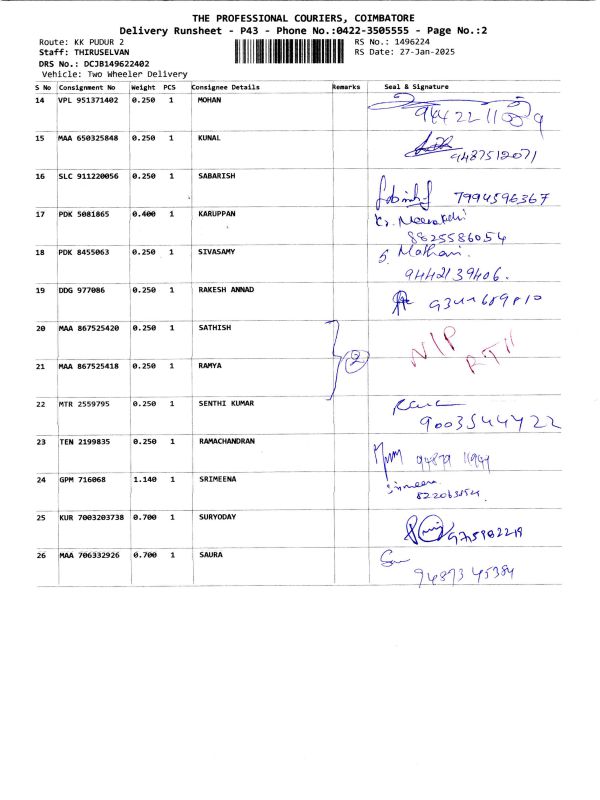 THE PROFESSIONAL COURIERS, COIMBATORE
Delivery Runsheet - P43 - Phone No.:0422-3505555 - Page No.:2
Route: KK PUDUR 2 RS No.: 1496224
Staff: THIRUSELVAN RS Date: 27-Jan-2025
DRS No.: DCJB149622402
Vehicle: Two Wheeler Delivery
S No Consignment No Weight PCS Consignee Details Remarks Seal & Signature
14 VPL 951371402 0.250 1 MOHAN
15 MAA 650325848 0.250 1 KUNAL
9487512071
16 SLC 911220056 0.250 1 SABARISH
7994596367
17 PDK 5081865 0.400 1 KARUPPAN
8825586054
18 PDK 8455063 0.250 1 SIVASAMY
S. Mathavi.
9442139406.
19 DDG 977086 0.250 1 RAKESH ANNAD
20 MAA 867525420 0.250 1 SATHISH
2 N/P
21 MAA 867525418 0.250 1 RAMYA
22 MTR 2559795 0.250 1 SENTHI KUMAR
9003544422
23 TEN 2199835 0.250 1 RAMACHANDRAN
24 GPM 716068 1.140 1 SRIMEENA
Srimeena
25 KUR 7003203738 0.700 1 SURYODAY
9715982219
26 MAA 706332926 0.700 1 SAURA
94873 45384